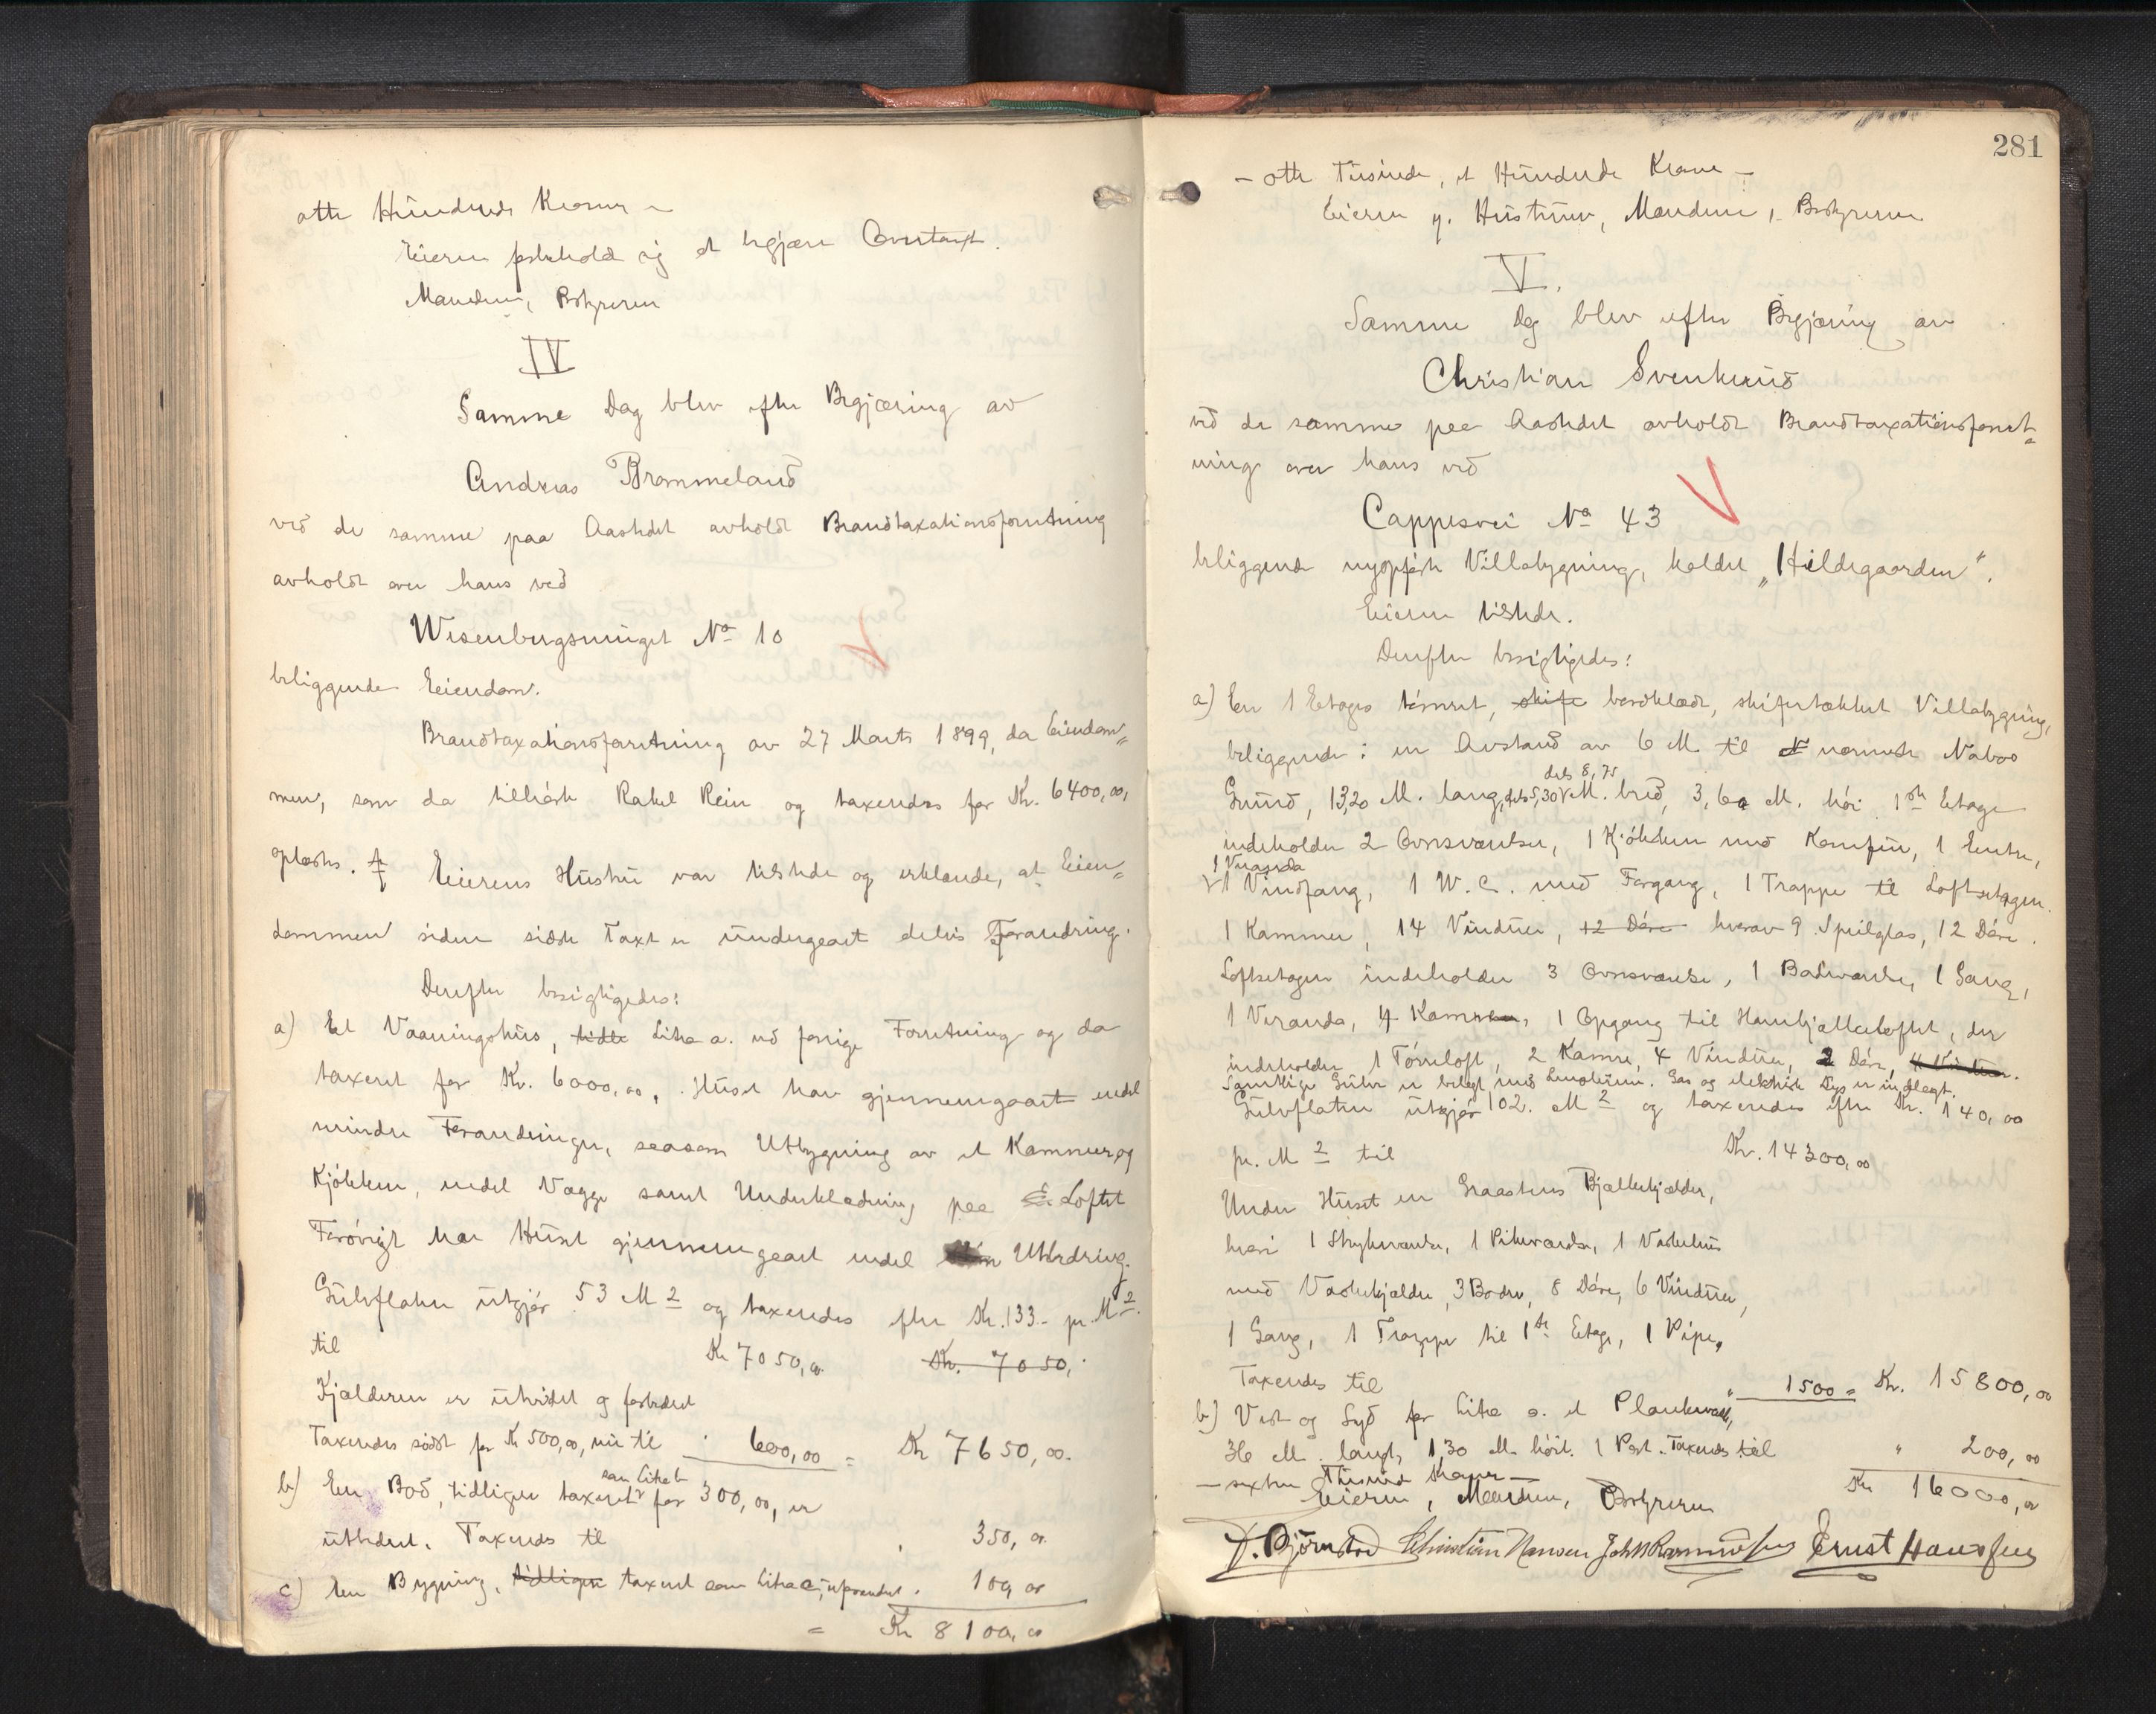 otte Hundrede Kroner –
Eieren forbeholdt sig at begjære Overtaxt.
Manden, Bestyreren
IV
Samme Dag blev efter Begjæring av
Andreas Brommeland
ved de samme paa Aastedet avholdt Brandtaxationsforretning
avholdt over hans ved
Wesenbergsmuget No 10
beliggende Eiendom.
Brandtaxationsforretning av 27 Marts 1899, da Eiendom„
men, som da tilhørte Rakel Rein og taxeredes for Kr. 6400,00,
oplæstes. Eierens Hustru var tilstede og erklærede, at Eien„
dommen siden sidste Taxt er undergaaet delvis Forandring.
Derefter besigtigedes:
a) Et Vaaningshus, Litra a. ved forrige Forretning og da
taxeret for Kr. 6000,00. Huset har gjennemgaaet endel
mindre Forandringer, saasom Utbygning av et Kammer og
Kjøkken, endel Vægge samt Underklædning paa Loftet
Forøvrigt har Huset gjennemgaaet endel Utbedring.
Gulvflaten utgjør 53 M2 og taxeredes efter Kr. 133.- pr. M2.
til Kr 7050,00. Kr. 7050,
Kjælderen er utvidet og forbedret
Taxeredes sidst for Kr 500,00, nu til 600,00 = Kr 7650,00.
b) En Bod, tidligere taxeret som Litra b for 300,00, er
utbedret. Taxeredes til 350,00
c) En Bygning, tidligere taxeret som Litra c, uforandret. 100,00
= Kr 8100,00
281
– otte Tusinde, et Hundrede Krone –
Eieren v. Hustruen, Manden, Bestyreren
V.
Samme Dag blev efter Begjæring av
Christian Svenkerud
ved de samme paa Aastedet avholdt Brandtaxationsforret„
ning over hans ved
Cappesvei No 43
beliggende nyopført Villabygning, kaldet „Hildegaarden".
Eieren tilstede.
Derefter besigtigedes:
a) En 1 Etages tømret, skife bordklædt, skifertækket Villabygning,
beliggende i en Avstand av 6 M. til nærmeste Nabos
Grund, 13,20 M. lang, dels 5,30 dels 8,75 M. bred, 3,60 M. høi. 1ste Etage
indeholder 2 Ovnsværelser, 1 Kjøkken med Komfur, 1 Entre,
1 Veranda
1 Vindfang, 1 W.C. med Forgang, 1 Trappe til Loftsetagen.
1 Kammer, 14 Vinduer, 12 Døre hvorav 9 Speilglas, 12 Døre.
Loftsetagen indeholder 3 Ovnsværelse, 1 Badeværelse, 1 Gang,
1 Veranda, 4 Kamre, 1 Opgang til Hanebjælkeloftet, der
indeholder 1 Tørreloft, 2 Kamre, 4 Vinduer, 2 Døre, 4 Vinduer.
Samtlige Gulve er belagt med Linoleum. Gas og elektrisk Lys er indlagt.
Gulvflaten utgjør 102. M2 og taxeredes efter Kr. 140,00
pr. M2 til Kr. 14300,00
Under Huset en Graastens Bjælkekjælder,
hvori 1 Strykeværelse, 1 Pikeværelse, 1 Vaskehus
med Vaskekjedel, 3 Boder, 8 Døre, 6 Vinduer,
1 Gang, 1 Trappe til 1ste Etage, 1 Pipe,
Taxeredes til " 1500 = Kr. 15800,00
b) Vest og Syd for Litra a. et Plankeværk,
36 M. langt, 1,30 M. høit. 1 Port. Taxeredes til " 200,00
– sexten Tusinde Kroner – Kr 16000,00
Eieren, Manden, Bestyreren
D. Bjørnstad Christian Hansen Joh. Rasmussen Ernst Hansen